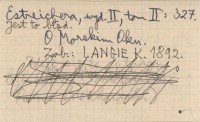 Estreichera, wyd. II, tom II: 327.
Jest to błąd.
O Morskim Oku.
Zob: LANGIE K. 1892.